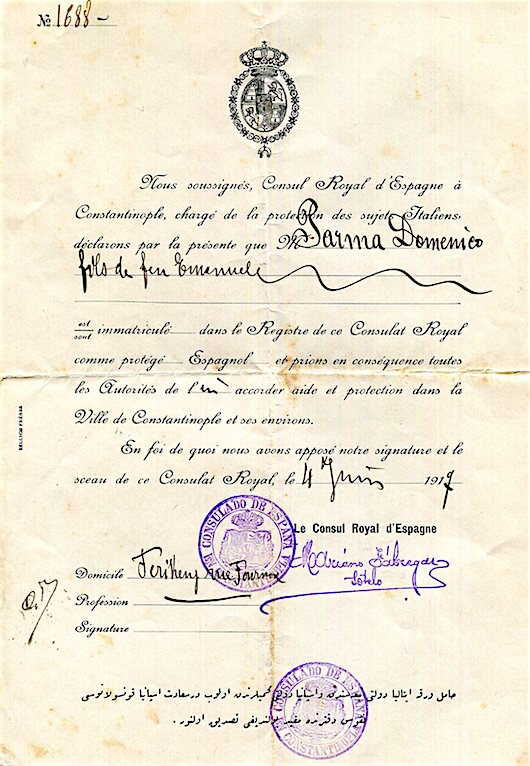 № 1688 -
Nous soussignés, Consul Royal d'Espagne à
Constantinople, chargé de la protection des sujets Italiens,
déclarons par la présente que M Parma Domenico
fils de feu Emanuele
est
sont immatriculé dans le Registre de ce Consulat Royal
comme protégé Espagnol et prions en conséquence toutes
les Autorités de l'en accorder aide et protection dans la
Ville de Constantinople et ses environs.
En foi de quoi nous avons apposé notre signature et le
sceau de ce Consulat Royal, le 4 Juin 1917
Le Consul Royal d'Espagne
CONSULADO DE ESPAÑA
Mariano Fábregas
Sotelo
Domicile Ferikeuy rue
Profession
Signature
CONSULADO DE ESPAÑA
CONSTANTINOPLA
حامل ورقه ايتاليا دولتى اسپانيا دولتى اولوب درسعادت اسپانيا قونسولاتوسى
دفترنده مقيد بولنديغى تصديق اولنور .